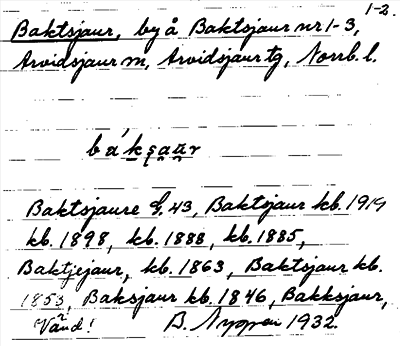 1-2.
Baktsjaur, by å Baktsjaur nr 1-3,
Arvidsjaur sn, Arvidsjaur tg, Norrb. l.
Baktsjaure G. 43, Baktsjaur kb. 1919
kb. 1898, kb. 1888, kb. 1885,
Baktjejaur, kb. 1863, Baktsjaur kb.
1853, Baksjaur kb. 1846, Bakksjaur,
Vänd! B. Nyman 1932.